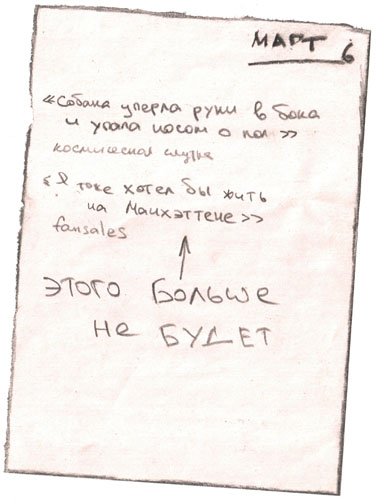 МАРТ 6
«Собака уперла руки в бока
и упала носом о пол»
космическая шутка
«Я тоже хотел бы жить
на Манхэттене»
fansales
ЭТОГО БОЛЬШЕ
НЕ БУДЕТ